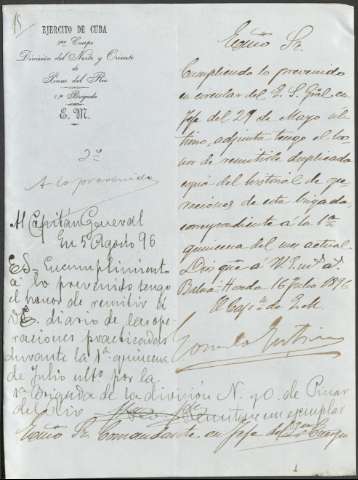 EJERCITO DE CUBA
2º Cuerpo
División del Norte y Oriente
de
Pinar del Río
1ª Brigada
E. M.
2º
A lo prevenido
Al Capitán General
En 5 Agosto 96
ES. En cumplimiento
á lo prevenido tengo
el honor de remitir á
VE. diario de las ope
raciones practicadas
durante la 1ª quincena
de Julio ulto por la
1ª brigada de la división N. y O. de Pinar
del Rio
Remiten un ejemplar
Excmo Sr.
Cumpliendo lo prevenido
en circular del E. S. Gral en
Jefe del 29 de Mayo úl-
timo, adjunto tengo el ho-
nor de remitirle duplicado
del historial de ope-
raciones de esta brigada
correspondiente á la 1ª
quincena del mes actual.
Dios gue á V.E. ms as
Bahia-Honda 16 Julio 1896
El de E.M.
Excmo Sr. Comandante en Jefe del Cuerpo